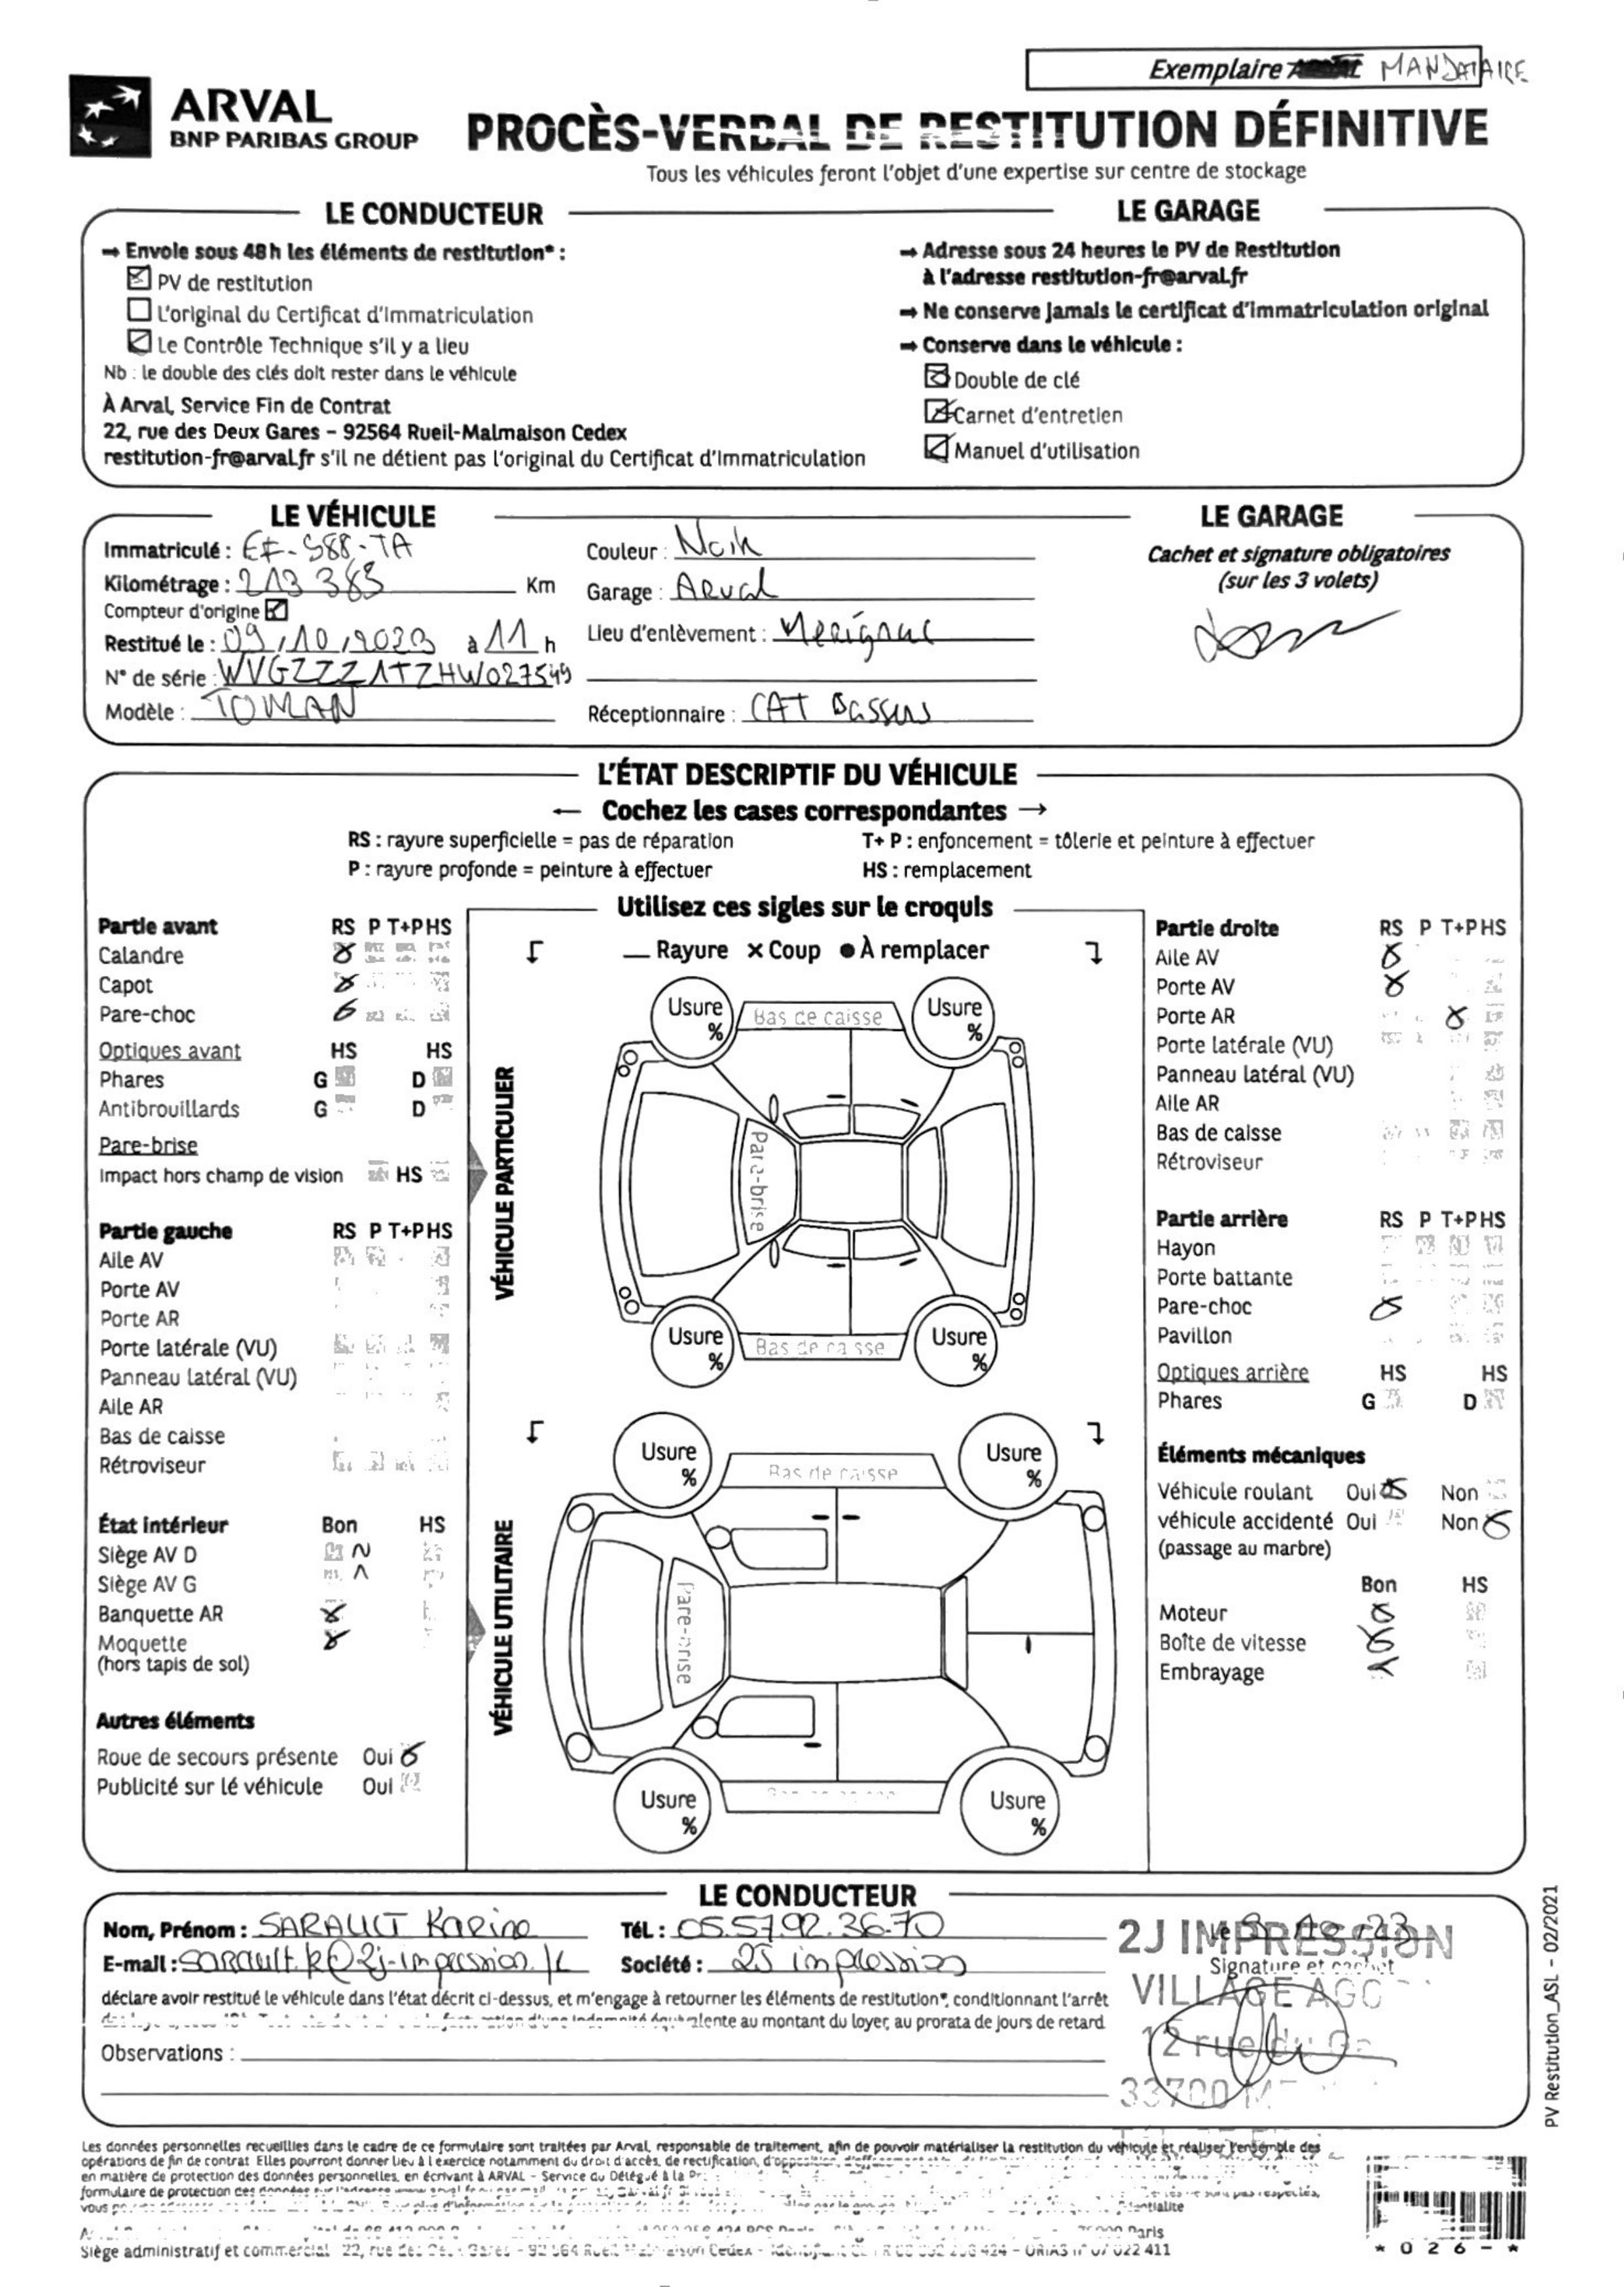 Exemplaire MANDATAIRE
ARVAL
BNP PARIBAS GROUP
PROCÈS-VERBAL DE RESTITUTION DÉFINITIVE
Tous les véhicules feront l'objet d'une expertise sur centre de stockage
LE CONDUCTEUR
→ Envoie sous 48 h les éléments de restitution* :
PV de restitution
L'original du Certificat d'Immatriculation
Le Contrôle Technique s'il y a lieu
Nb : le double des clés doit rester dans le véhicule
À Arval, Service Fin de Contrat
22, rue des Deux Gares – 92564 Rueil-Malmaison Cedex
restitution-fr@arval.fr s'il ne détient pas l'original du Certificat d'Immatriculation
LE GARAGE
→ Adresse sous 24 heures le PV de Restitution
à l'adresse restitution-fr@arval.fr
→ Ne conserve jamais le certificat d'immatriculation original
→ Conserve dans le véhicule :
Double de clé
Carnet d'entretien
Manuel d'utilisation
LE VÉHICULE
Immatriculé : EF-988-TA
Kilométrage : 213 383 Km
Compteur d'origine
Restitué le : 09/10/2023 à 11 h
N° de série : WVGZZZ1TZHW027549
Modèle : TOURAN
Couleur : Noir
Garage : Arval
Lieu d'enlèvement : Merignac
Réceptionnaire : CAT Bassens
LE GARAGE
Cachet et signature obligatoires
(sur les 3 volets)
L'ÉTAT DESCRIPTIF DU VÉHICULE
← Cochez les cases correspondantes →
RS : rayure superficielle = pas de réparation
P : rayure profonde = peinture à effectuer
T+ P : enfoncement = tôlerie et peinture à effectuer
HS : remplacement
Partie avant RS P T+P HS
Calandre
Capot
Pare-choc
Optiques avant HS HS
Phares G D
Antibrouillards G D
Pare-brise
Impact hors champ de vision HS
Partie gauche RS P T+P HS
Aile AV
Porte AV
Porte AR
Porte latérale (VU)
Panneau latéral (VU)
Aile AR
Bas de caisse
Rétroviseur
État intérieur Bon HS
Siège AV D
Siège AV G
Banquette AR
Moquette
(hors tapis de sol)
Autres éléments
Roue de secours présente Oui
Publicité sur lé véhicule Oui
Utilisez ces sigles sur le croquis
— Rayure × Coup ● À remplacer
VÉHICULE PARTICULIER
Usure %
Bas de caisse
Usure %
Pare-brise
Usure %
Bas de caisse
Usure %
VÉHICULE UTILITAIRE
Usure %
Bas de caisse
Usure %
Pare-brise
Usure %
Usure %
Partie droite RS P T+P HS
Aile AV
Porte AV
Porte AR
Porte latérale (VU)
Panneau latéral (VU)
Aile AR
Bas de caisse
Rétroviseur
Partie arrière RS P T+P HS
Hayon
Porte battante
Pare-choc
Pavillon
Optiques arrière HS HS
Phares G D
Éléments mécaniques
Véhicule roulant Oui Non
véhicule accidenté Oui Non
(passage au marbre)
Bon HS
Moteur
Boîte de vitesse
Embrayage
LE CONDUCTEUR
Nom, Prénom : SARAULT Karine
Tél. : 05.57.92.36.70
E-mail : sarault.k@2j-impression.
Société : 2J impression
déclare avoir restitué le véhicule dans l'état décrit ci-dessus, et m'engage à retourner les éléments de restitution*, conditionnant l'arrêt
équivalente au montant du loyer, au prorata de jours de retard
Observations :
2J IMPRESSION
Signature et cachet
VILLAGE
12 rue du
33700
PV Restitution_ASL - 02/2021
Les données personnelles recueillies dans le cadre de ce formulaire sont traitées par Arval, responsable de traitement, afin de pouvoir matérialiser la restitution du véhicule et réaliser l'ensemble des
opérations de fin de contrat. Elles pourront donner lieu à l'exercice notamment du droit d'accès, de rectification, d'opposition,
en matière de protection des données personnelles, en écrivant à ARVAL – Service du Délégué à la
formulaire de protection des données
vous
Paris
Siège administratif et commercial 22, rue des Deux Gares – 92564 Rueil Malmaison Cedex – – ORIAS n° 07 022 411
* 0 2 6 - *